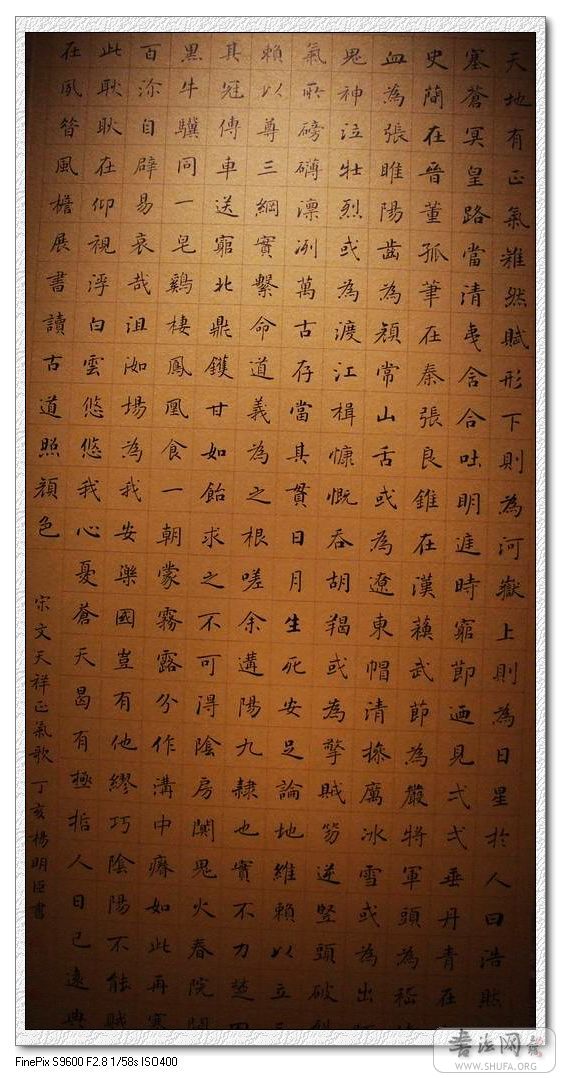 天地有正氣雜然賦形下則為河嶽上則為日星於人曰浩然
塞蒼冥皇路當清夷含合吐明庭時窮節迺見弌弌垂丹青在
史簡在晉董孤筆在秦張良錐在漢蘇武節為嚴將軍頭為嵇
血為張睢陽齒為顏常山舌或為遼東帽清操厲冰雪或為出
鬼神泣壯烈或為渡江楫慷慨吞胡羯或為擊賊笏逆豎頭破
氣所磅礴凛冽萬古存當其貫日月生死安足論地維賴以立
賴以尊三綱實繫命道義為之根嗟余遘陽九隸也實不力楚
其冠傳車送窮北鼎鑊甘如飴求之不可得陰房闃鬼火春院
黑牛驥同一皂鷄棲鳳凰食一朝蒙霧露分作溝中瘠如此再寒
百沴自辟易哀哉沮洳場為我安樂國豈有他繆巧陰陽不能賊
此耿耿在仰視浮白雲悠悠我心憂蒼天曷有極哲人日已遠典
在夙昔風檐展書讀古道照顏色
宋文天祥正氣歌 丁亥楊明臣書
书法网
WWW.SHUFA.ORG
FinePix S9600 F2.8 1/58s ISO400